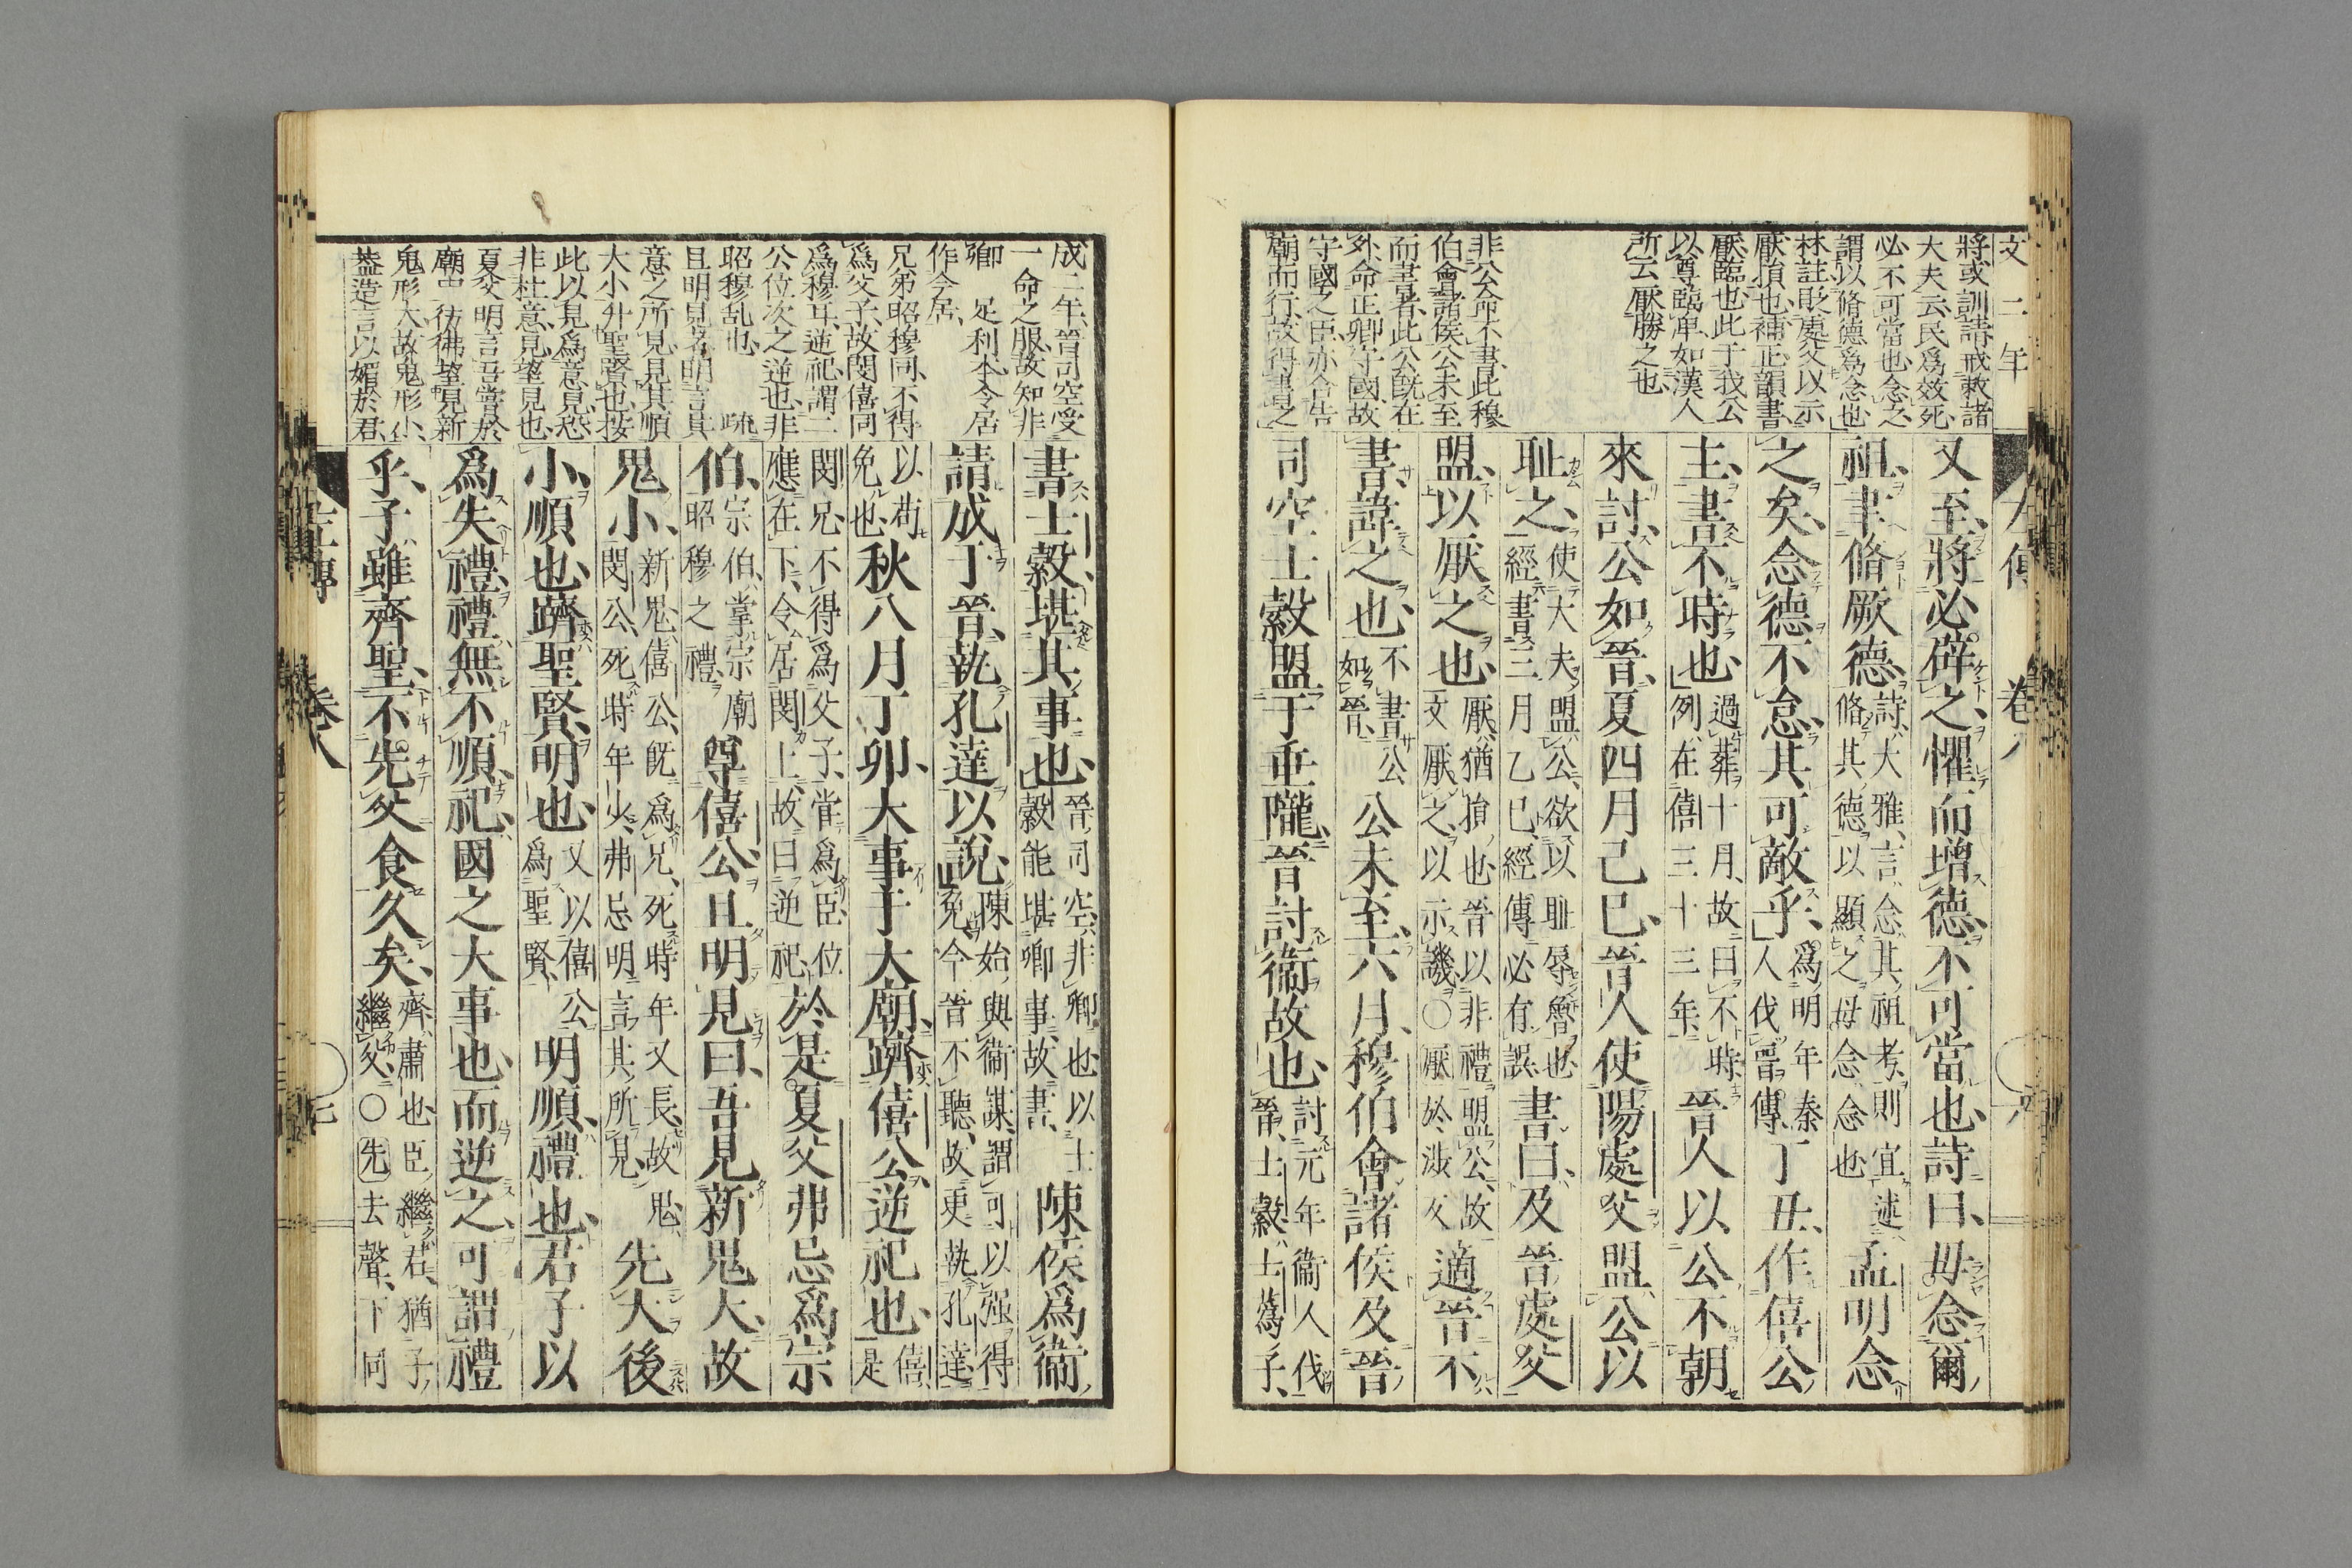 文二年
將或訓請、戒敕諸
大夫云、民爲效死
必不可當也、念之
謂以脩德爲念也
林註貶處父以示
厭損也、補正、韻書、
厭臨也、此于我公
以尊臨卑、如漢人
所云厭勝之也
非公命不書、此穆
伯會諸侯公未至
而書者、此公既在
外、命正卿守國、故
守國之臣、亦合告
廟而行、故得書之
又至、將必辟之、懼而增德、不可當也、詩曰、毋念爾
祖、聿脩厥德、詩、大雅、言念其祖考、則宜述脩其德、以顯之、毋念、念也孟明念
之矣、念德不怠、其可敵乎、爲明年秦人伐晉傳、丁丑、作僖公
主、書不時也、過葬十月、故曰不時、例在僖三十三年、晉人以公不朝
來討、公如晉、夏四月己巳、晉人使陽處父盟公以
恥之、使大夫盟公、欲以恥辱魯也、經書三月乙巳、經傳必有誤書曰、及晉處父
盟、以厭之也、厭、猶損也、晉以非禮盟公、故文厭之、以示譏、○厭於涉反適晉不
書、諱之也、不書公如晉、公未至、六月、穆伯會諸侯及晉
司空士縠盟于垂隴、晉討衞故也、討元年衞人伐晉、士縠、士蔿子、
左傳 卷八
成二年、晉司空受
一命之服、故知非
卿 足利本令居
作今居、
兄弟昭穆同、不得
爲父子、故閔僖同
爲穆耳、逆祀、謂二
公位次之逆也、非
昭穆乱也、 疏
且明見者、明言其
意之所見、見其順
大小升聖賢也、按
此以見爲意見、恐
非杜意、見、望見也、
夏父明言吾嘗於
廟中彷彿望見新
鬼形大、故鬼形小、
蓋造言以媚於君、
書士縠、堪其事也、晉司空、非卿也、以士縠能堪卿事、故書、陳侯爲衞
請成于晉、執孔達以說、陳始與衞謀、謂可以强得免、今晉不聽、故更執孔達
以苟免也、秋八月丁卯、大事于大廟、躋僖公、逆祀也、僖、是
閔兄、不得爲父子、嘗爲臣、位應在下、令居閔上、故曰逆祀、於是夏父弗忌爲宗
伯、宗伯、掌宗廟昭穆之禮、尊僖公、且明見曰、吾見新鬼大、故
鬼小、新鬼、僖公、既爲兄、死時年又長、故鬼、閔公、死時年少、弗忌明言其所見、先大後
小、順也、躋聖賢、明也、又以僖公爲聖賢、明順、禮也、君子以
爲失禮、禮無不順、祀、國之大事也、而逆之、可謂禮
乎、子雖齊聖、不先父食久矣、齊、肅也、臣繼君、猶子繼父、○先去聲、下同
左傳 卷八